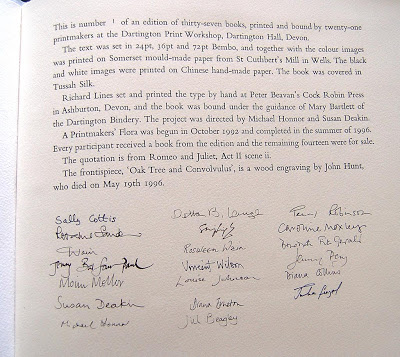 This is number 1 of an edition of thirty-seven books, printed and bound by twenty-one
printmakers at the Dartington Print Workshop, Dartington Hall, Devon.
The text was set in 24pt, 36pt and 72pt Bembo, and together with the colour images
was printed on Somerset mould-made paper from St Cuthbert's Mill in Wells. The black
and white images were printed on Chinese hand-made paper. The book was covered in
Tussah Silk.
Richard Lines set and printed the type by hand at Peter Beavan's Cock Robin Press
in Ashburton, Devon, and the book was bound under the guidance of Mary Bartlett of
the Dartington Bindery. The project was directed by Michael Honnor and Susan Deakin.
A Printmakers' Flora was begun in October 1992 and completed in the summer of 1996.
Every participant received a book from the edition and the remaining fourteen were for sale.
The quotation is from Romeo and Juliet, Act II scene ii.
The frontispiece, 'Oak Tree and Convolvulus', is a wood engraving by John Hunt,
who died on May 19th 1996.
Sally Cottis
Susan Deakin
Michael Honnor
Della B.
Rosaleen Wain
Vincent Wilson
Louise Johnson
Diana
Jill Beagley
Penny Robinson
Caroline Moxley
Jenny
Diana